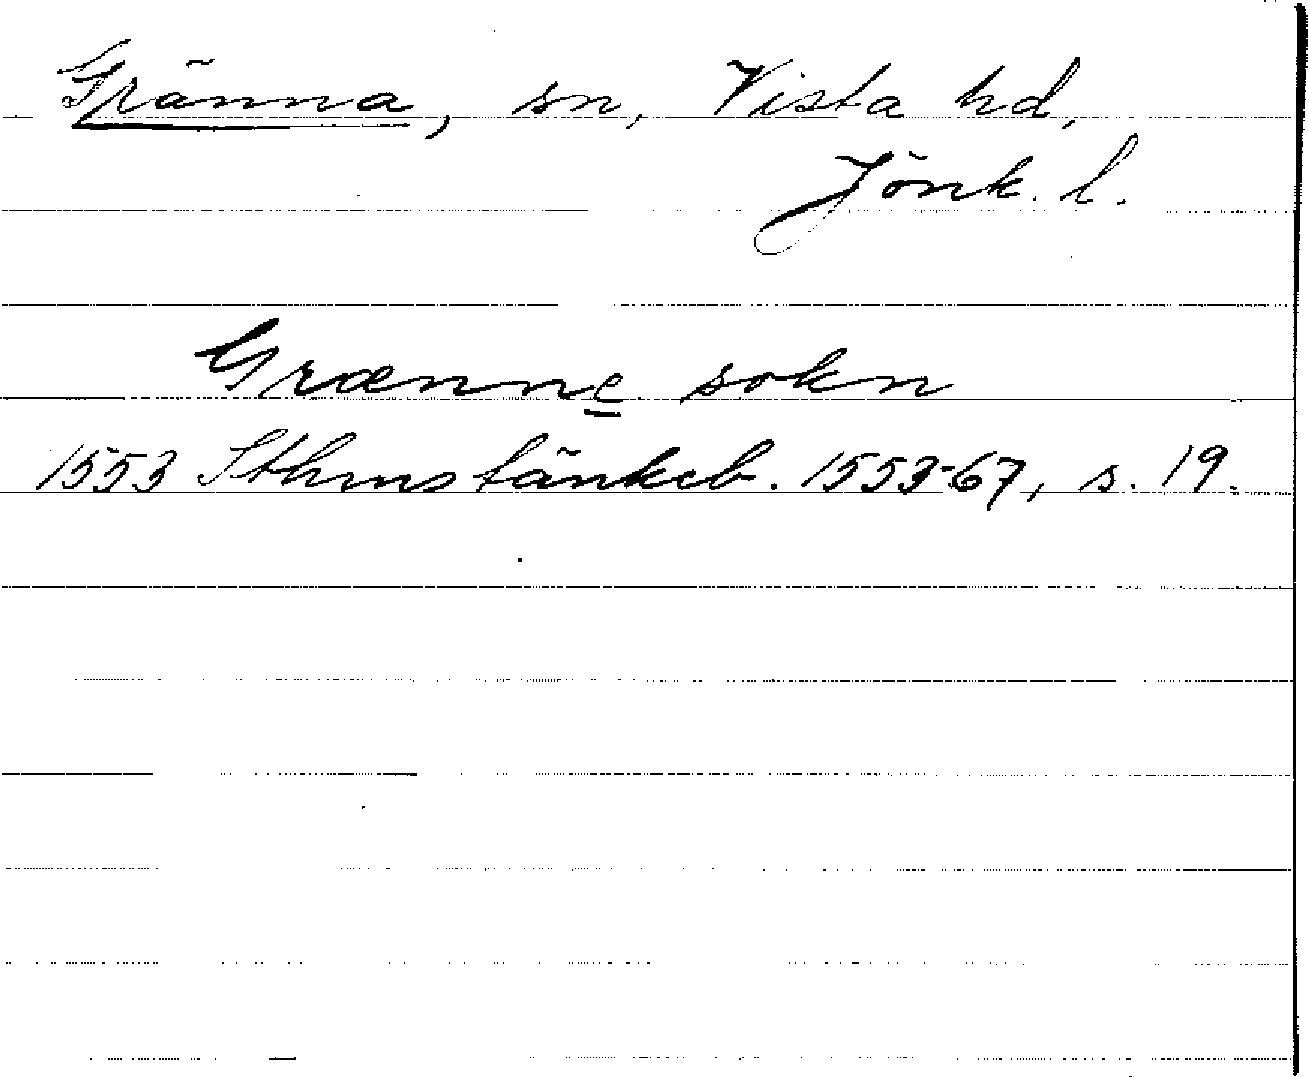 Gränna, sn, Vista hd,
Jönk. l.
Grænne sokn
1553 Sthms tänkeb. 1553-67, s. 19.